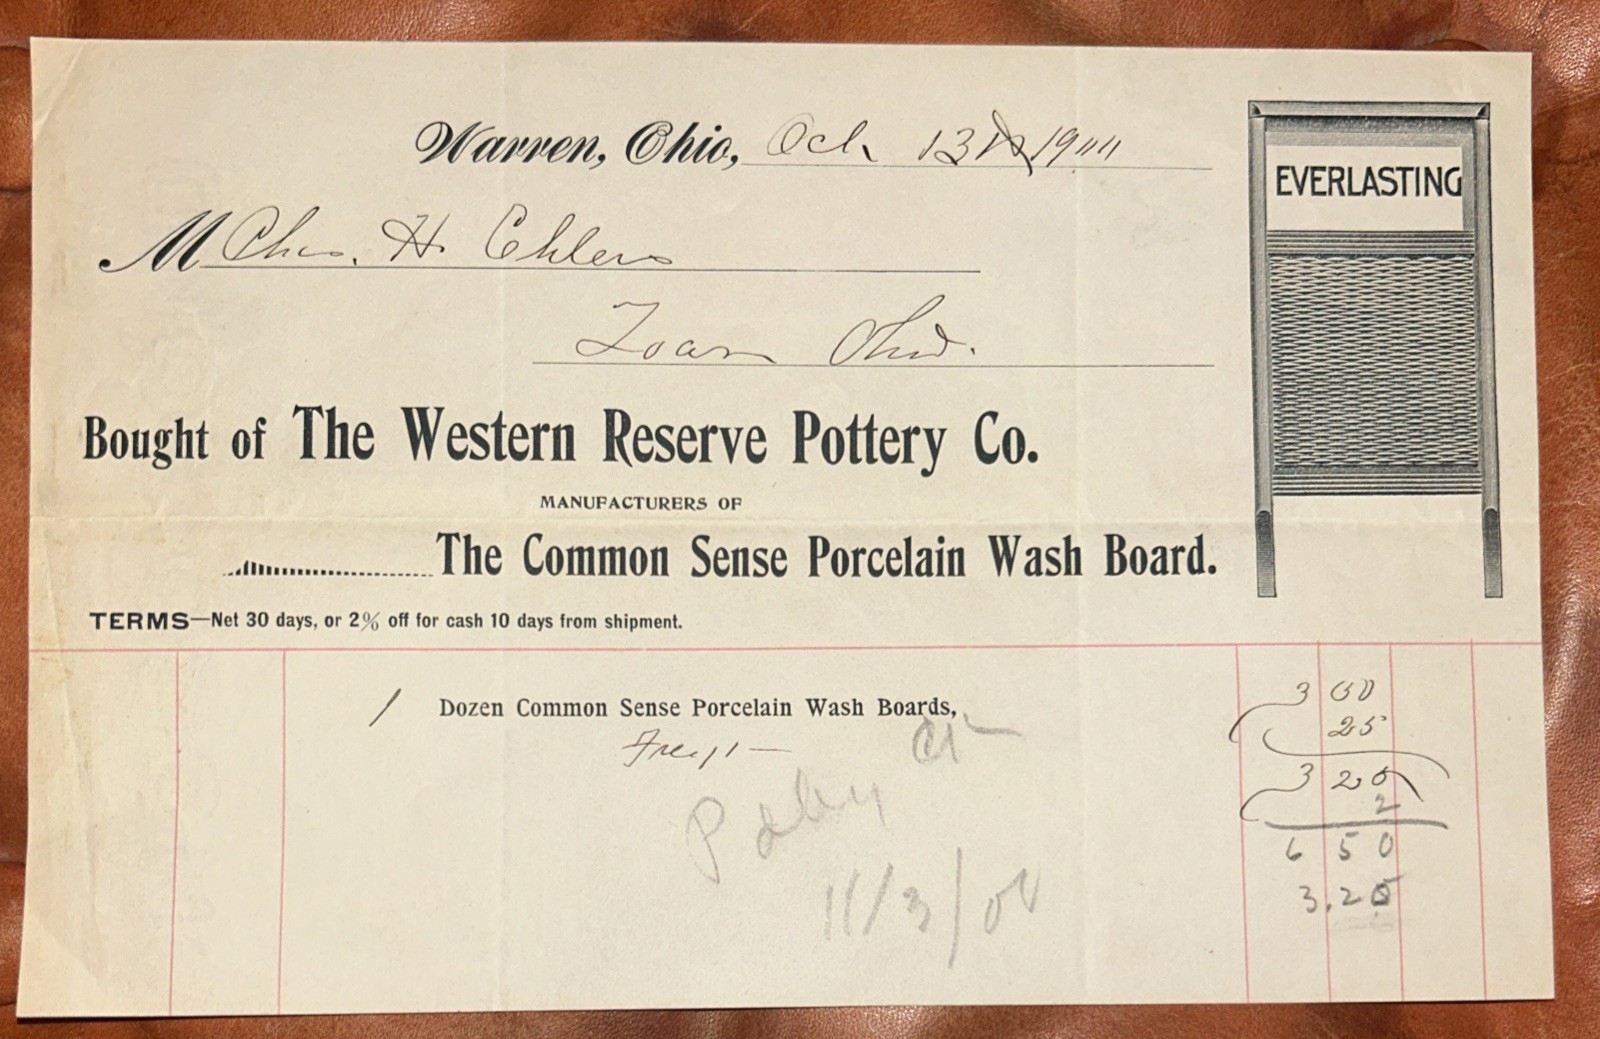 Warren, Ohio, Oct. 13 1900
EVERLASTING
M Chas. H. Ehlers
Zoar Ohio.
Bought of The Western Reserve Pottery Co.
MANUFACTURERS OF
The Common Sense Porcelain Wash Board.
TERMS—Net 30 days, or 2% off for cash 10 days from shipment.
1 Dozen Common Sense Porcelain Wash Boards, 3 00
25
3 25
2
6 50
3.25
11/3/00